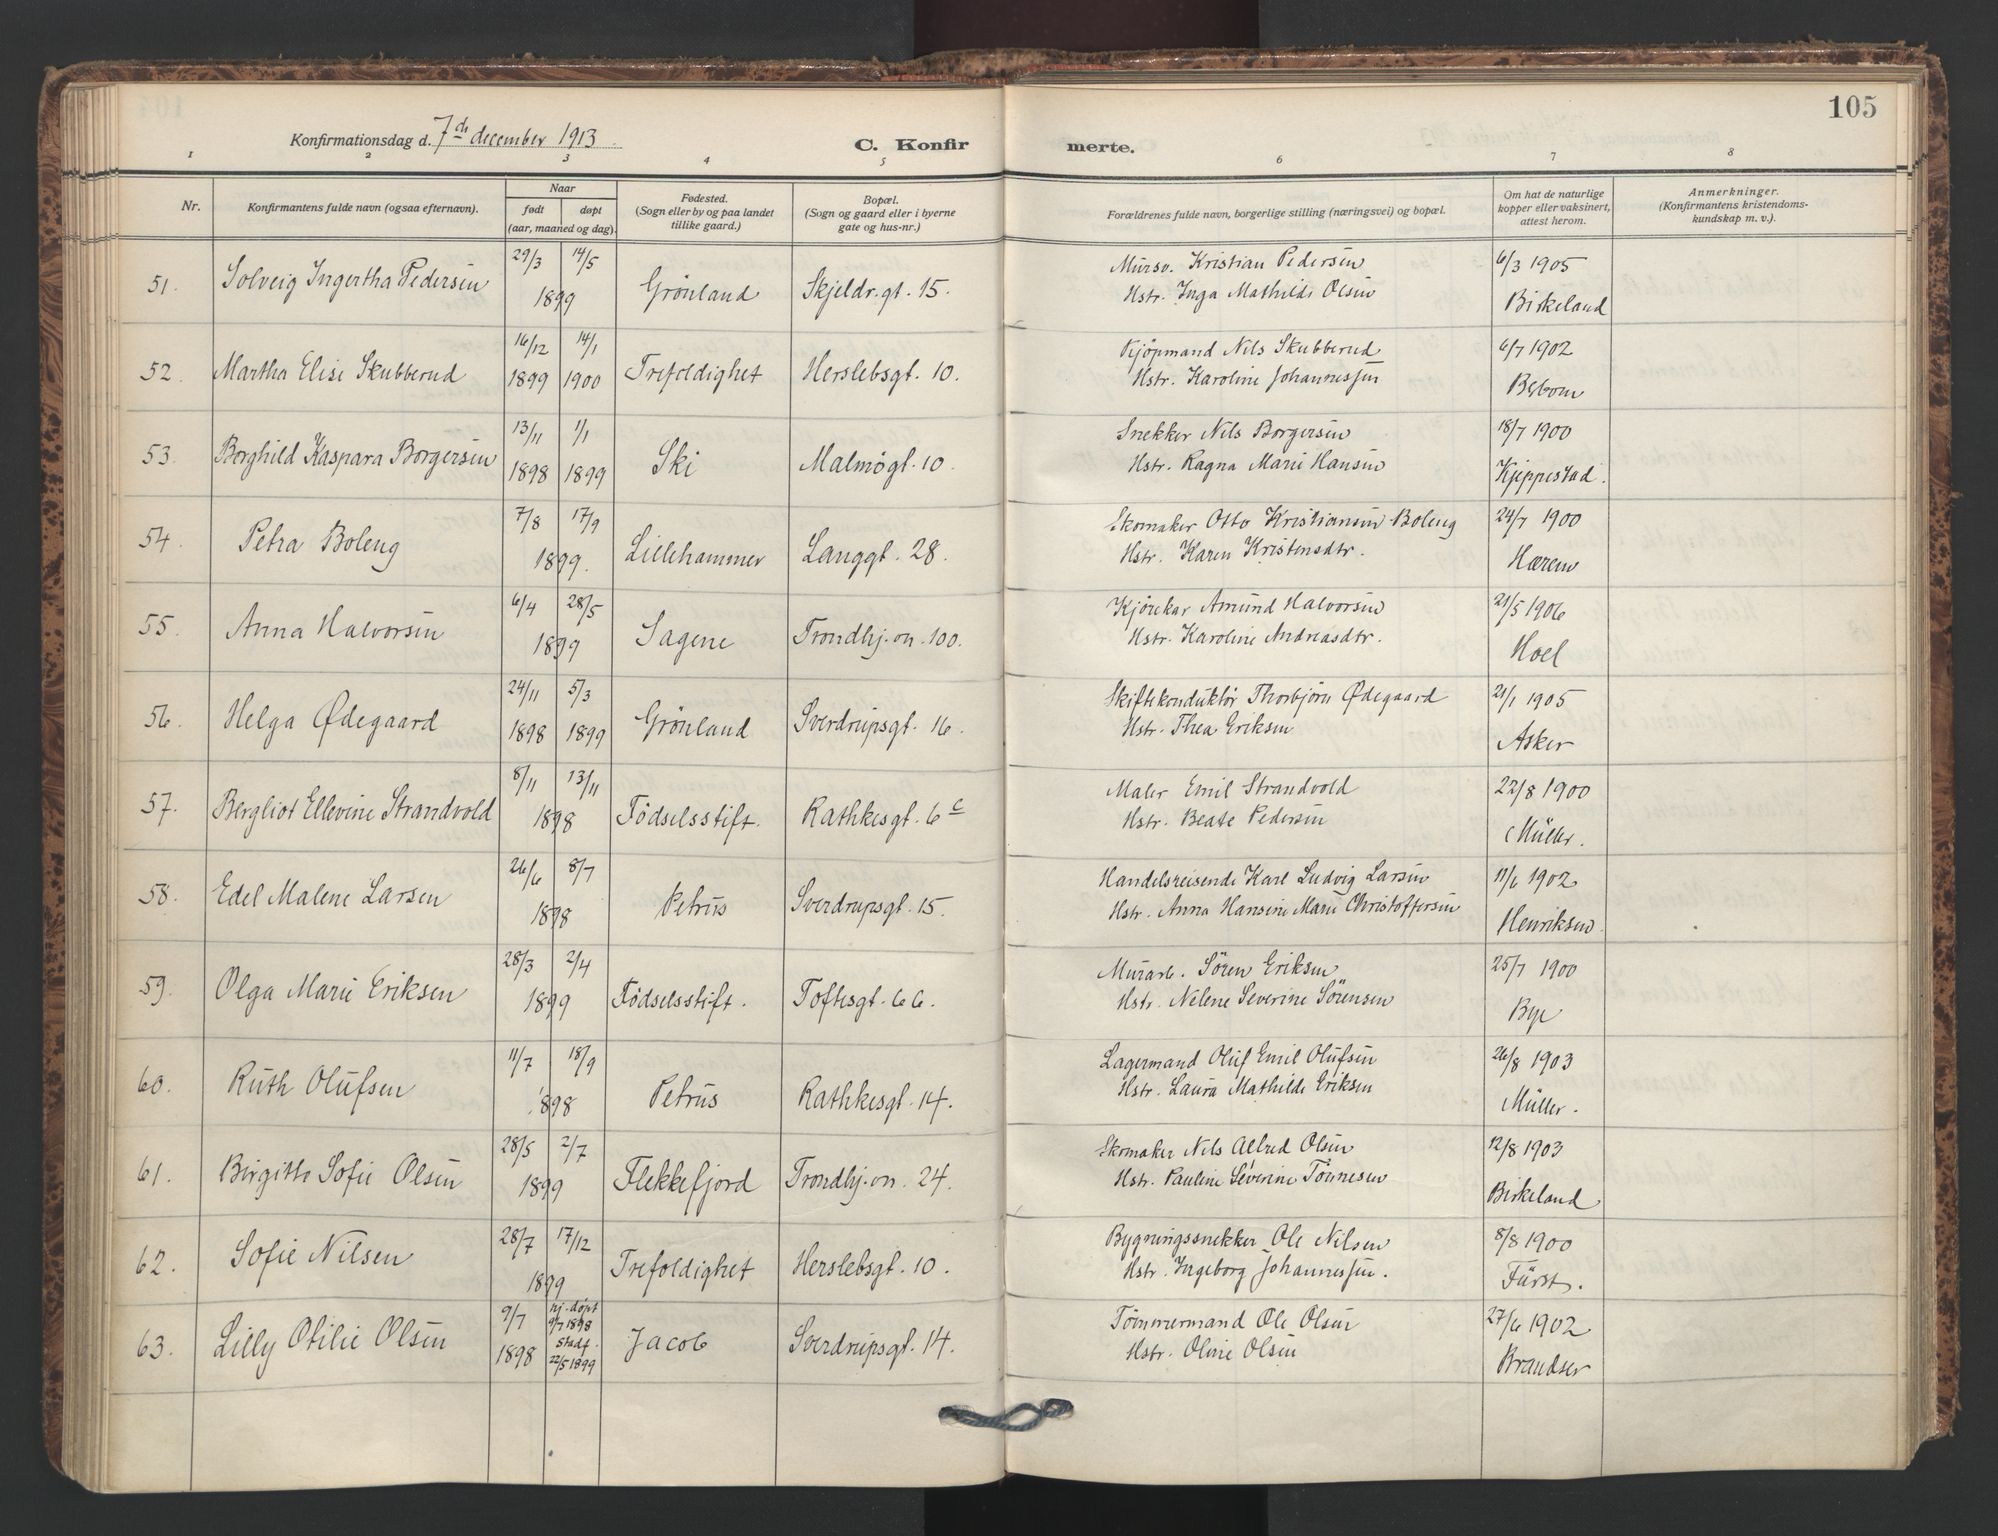 105
Konfirmationsdag d. 7de december 1913.
C. Konfirmerte.
1 2 3 4 5 6 7 8
Nr.
Konfirmantens fulde navn (ogsaa efternavn).
Naar
født døpt
(aar, maaned og dag).
Fødested.
(Sogn eller by og paa landet
tillike gaard.)
Bopæl.
(Sogn og gaard eller i byerne
gate og hus-nr.)
Forældrenes fulde navn, borgerlige stilling (næringsvei) og bopæl.
Om hat de naturlige
kopper eller vaksinert,
attest herom.
Anmerkninger.
(Konfirmantens kristendoms-
kundskap m. v.)
51. Solveig Ingertha Pedersen 29/3 14/5 1899 Grönland Skjeldr.gt. 15.
Mursv. Kristian Pedersen
Hstr. Inga Mathilde Olsen
6/3 1905
Birkeland
52. Martha Elise Skubberud 16/12 1899 14/1 1900 Trefoldighet Herslebsgt. 10.
Kjöpmand Nils Skubberud
Hstr. Karoline Johannessen
6/7 1902
53. Borghild Kaspara Borgersen 13/11 1898 1/1 1899 Ski Malmögt. 10.
Snekker Nils Borgersen
Hstr. Ragna Marie Hansen
18/7 1900
Kjeppestad.
54. Petra Boleng 7/8 17/9 1899. Lillehammer Langgt. 28.
Skomaker Otto Kristiansen Boleng
Hstr. Karen Kristensdtr.
24/7 1900
Hærem
55. Anna Halvorsen 6/4 28/5 1899 Sagene Trondhj.vn. 100.
Kjörekar Amund Halvorsen
Hstr. Karoline Andreasdtr.
21/5 1906
Hoel
56. Helga Ødegaard 24/11 1898 5/3 1899 Grönland Sverdrupsgt. 16.
Skiftekonduktör Thorbjörn Ødegaard
Hstr. Thea Eriksen
21/1 1905
Asker
57. Bergliot Ellevine Strandvold 8/11 13/11 1898 Födselsstift. Rathkesgt. 6c
Maler Emil Strandvold
Hstr. Beate Pedersen
22/8 1900
Müller.
58. Edel Malene Larsen 26/6 8/7 1898 Petrus Sverdrupsgt. 15.
Handelsreisende Karl Ludvig Larsen
Hstr. Anna Hansine Marie Christoffersen
11/6 1902
Henriksen
59. Olga Marie Eriksen 28/3 2/4 1899 Födselsstift. Toftesgt. 66.
Murarb. Sören Eriksen
Hstr. Nelene Severine Sörensen
25/7 1900
Bye
60. Ruth Olufsen 11/7 18/9 1898 Petrus Rathkesgt. 14.
Lagermand Oluf Emil Olufsen
Hstr. Laura Mathilde Eriksen
26/8 1903
Müller.
61. Birgitte Sofie Olsen 28/5 2/7 1899 Flekkefjord Trondhj.vn. 24.
Skomaker Nils Alfred Olsen
Hstr. Pauline Severine Tönnesen
12/8 1903
Birkeland
62. Sofie Nilsen 28/7 17/12 1899 Trefoldighet Herslebsgt. 10.
Bygningssnekker Ole Nilsen
Hstr. Ingeborg Johannessen.
8/8 1900
Fürst.
63. Lilly Otilie Olsen 9/7 1898 hj.døpt 9/7 1898 stadf. 22/5 1899 Jacob Sverdrupsgt. 14.
Tömmermand Ole Olsen
Hstr. Oline Olsen
27/6 1902